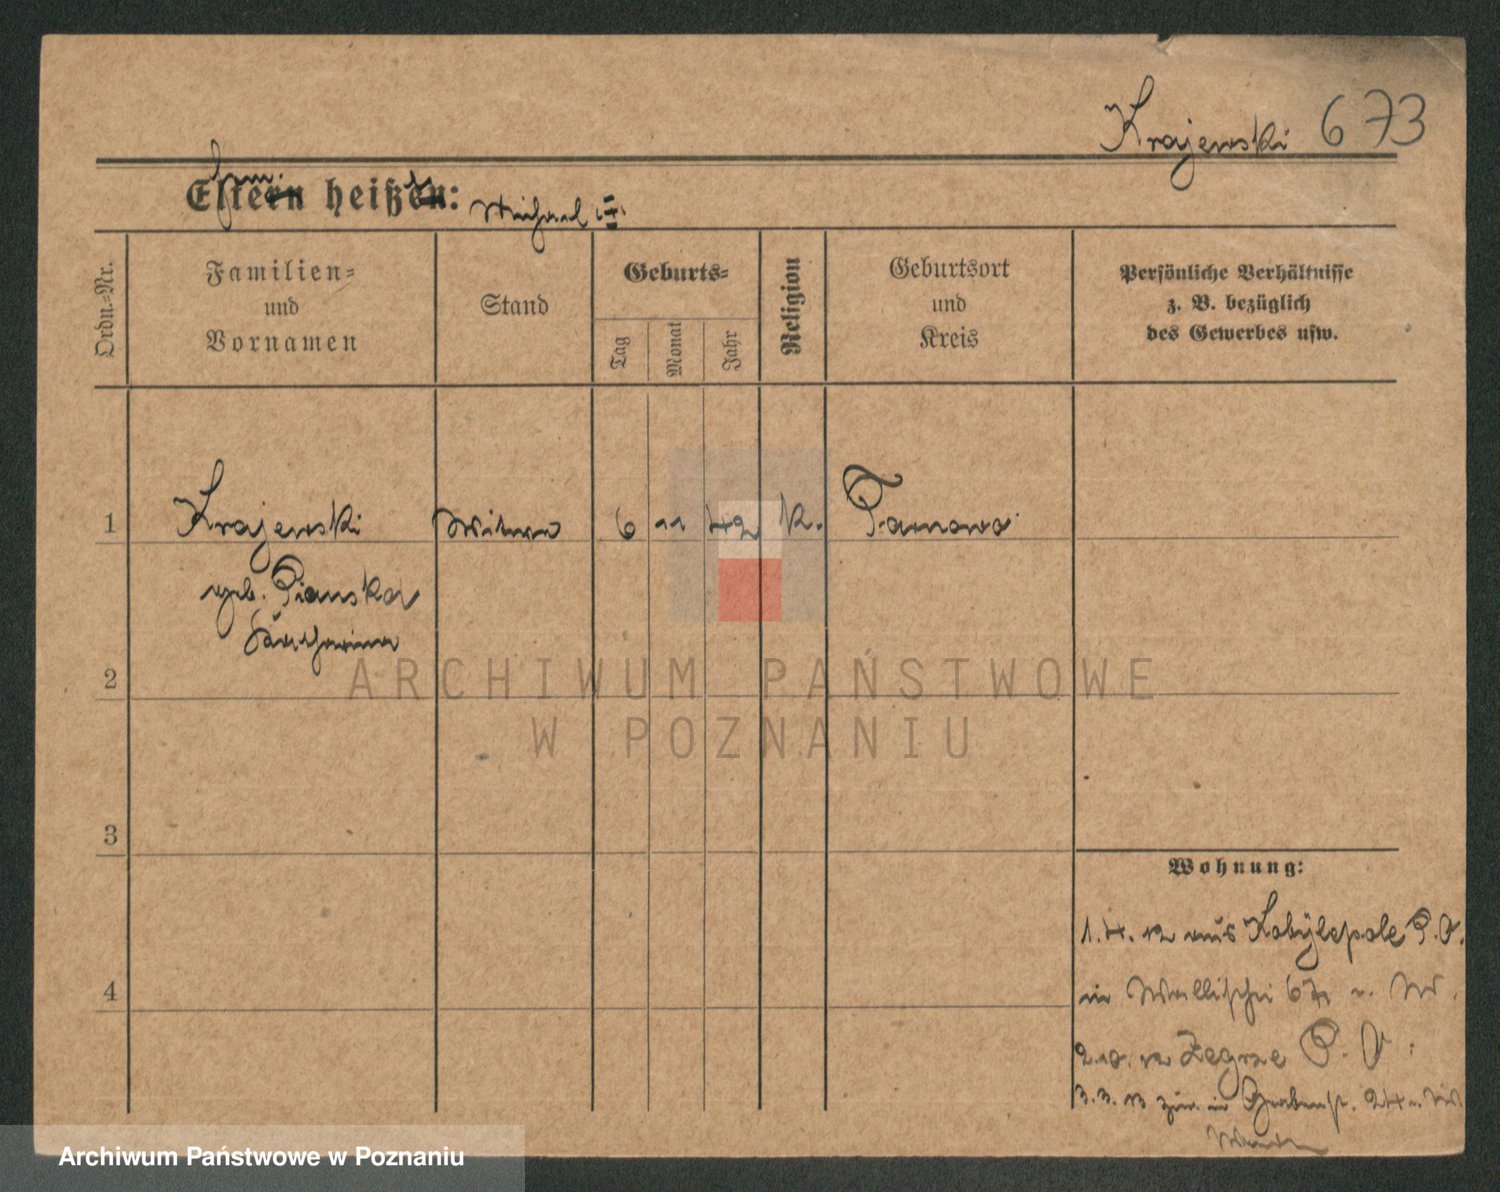 Krajewski 673
Eltern heißen: Michael (†)
Ordn.-Nr.
Familien-
und
Vornamen
Stand
Geburts-
Tag
Monat
Jahr
Religion
Geburtsort
und
Kreis
Persönliche Verhältnisse
z. B. bezüglich
des Gewerbes usw.
1 Krajewski Witwe 6 11 42 k. Tarnowo
geb. Pianska
Katharina
2
3
4
Wohnung:
1.4.12 aus Kobylepole P.O.
in Wallischei 67
2.10.12 Zegrze P. O.
3.3.13 zur. in Grabenstr. 24
ARCHIWUM PAŃSTWOWE
W POZNANIU
Archiwum Państwowe w Poznaniu